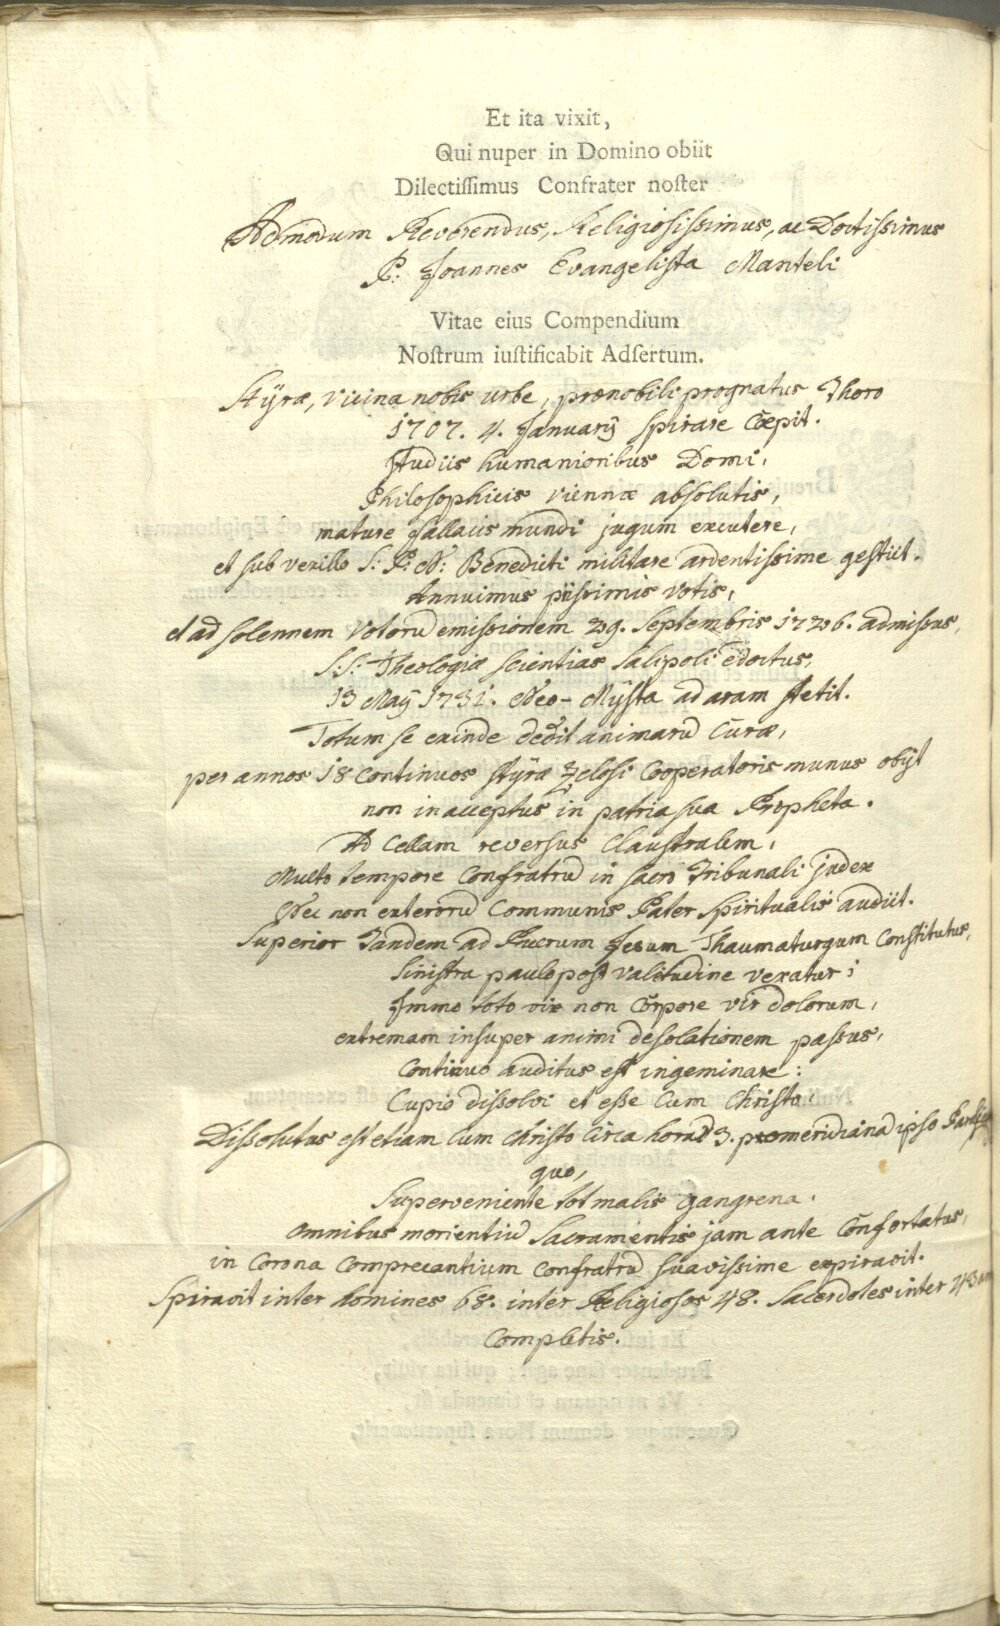 Et ita vixit,
Qui nuper in Domino obiit
Dilectiſſimus Confrater noſter
Admodum Reverendus, Religiosissimus, ac Doctissimus
P. Joannes Evangelista Manteli
Vitae eius Compendium
Noſtrum iuſtificabit Adſertum.
Styræ, vicina nobis urbe, prænobili prognatus Thoro
1707. 4. Januarij spirare cœpit.
Studiis humanioribus Domi,
Philosophicis viennæ absolutis,
mature fallacis mundi jugum excutere,
et sub vexillo S: P: N: Benedicti militare ardentissime gestiit.
Annuimus piissimis votis,
et ad solennem votorū emissionem 29. Septembris 1726. admissus,
S.S. Theologiæ scientias Salipoli edoctus,
13 Maij 1731. Neo-Mÿsta ad aram stetit.
Totum se exinde dedit animarū Curæ,
per annos 18 continuos styræ Zelosi Cooperatoris munus obijt
non inacceptus in patria sua Propheta.
Ad Cellam reversus Claustralem,
Multo tempore Confratrū in sacro Tribunali judex
Nec non exterorū Communis Pater Spiritualis audiit.
Superior Tandem ad Puerum Jesum Thaumaturgum Constitutus,
Sinistra paulo post valitudine vexatur;
Immo toto non Corpore vir dolorum,
extremam insuper animi desolationem passus,
Continuo auditus est ingeminare:
Cupio dissolvi et esse Cum Christo.
Dissolutus est etiam Cum Christo Circa horā 3. promeridianā ipso
quo,
Superveniente tot malis gangrena,
omnibus morientiū Sacramentis jam ante Confortatus,
in Corona Comprecantium Confratrū suavissime expiravit.
Spiravit inter homines 68. inter Religiosos 48. Sacerdotes inter 43
Completis.